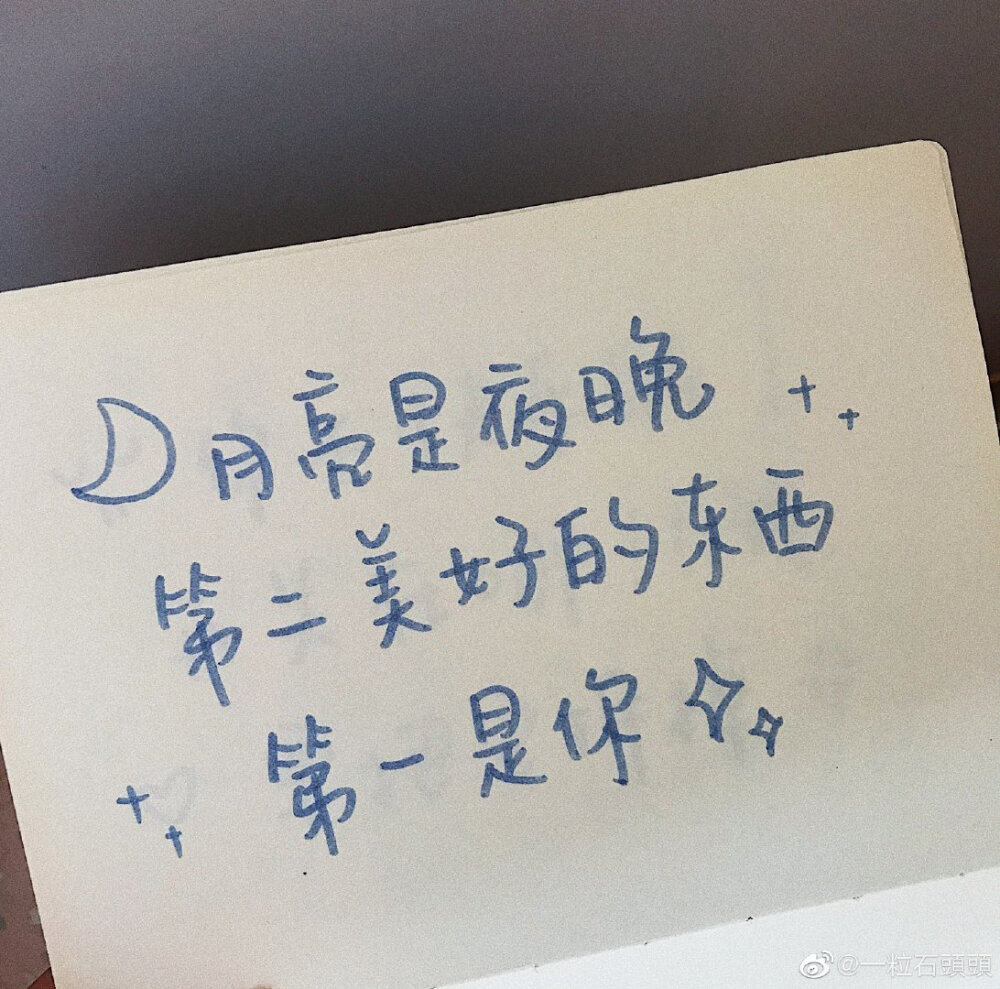 月亮是夜晚
第二美好的东西
第一是你
@一粒石頭頭